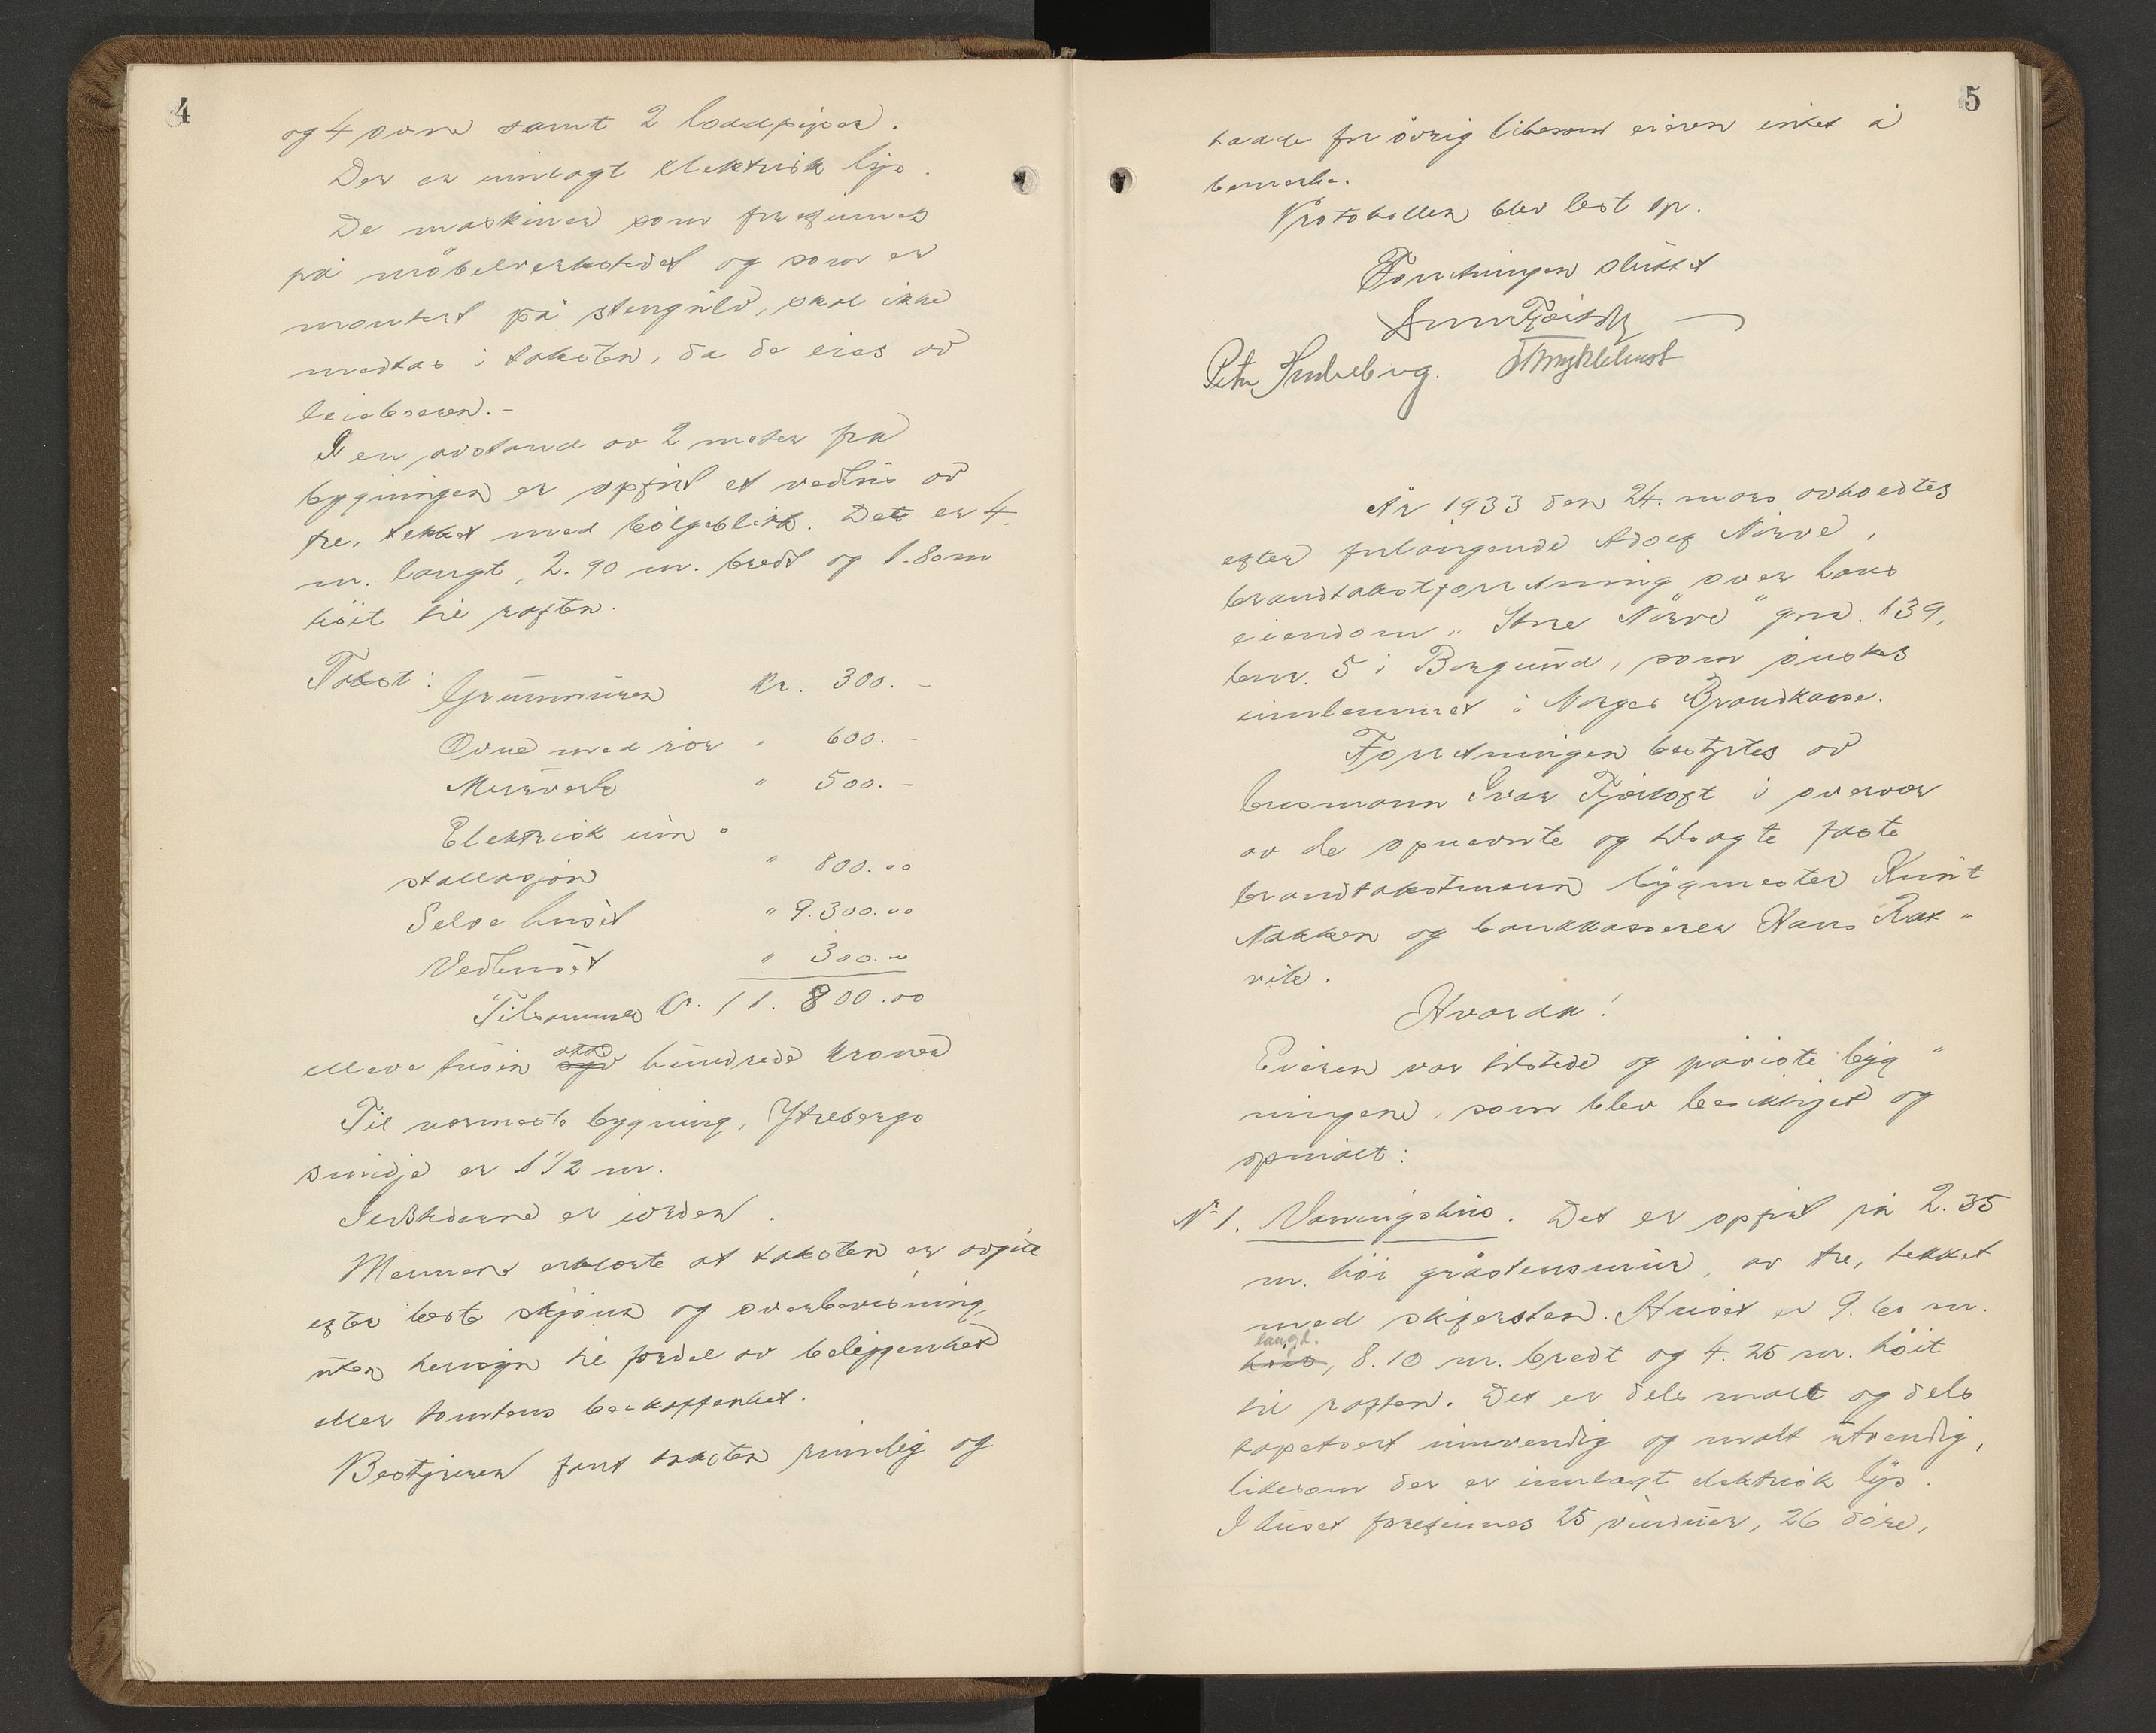 4
og 4 ovne samt 2 loddpiper.
Der er innlagt elektrisk lys.
De maskiner som forefinnes
på möbelverkstedet og som er
montert på stengulv, skal ikke
medtas i taksten, da de eies av
leieboeren.-
I en avstand av 2 meter fra
bygningen er opfört et vedhus av
tre, tekket med bölgeblikk. Det er 4
m. langt, 2.90 m. bredt og 1.80 m
höit til raften.
Takst: Grunnmuren kr. 300.-
Ovne med rör " 600.-
Murverk " 500.-
Elektrisk inn-
stallasjon " 800.00
Selve huset " 9.300.00
Vedhuset " 300.00
Tilsammen kr. 11.800.00
elleve tusin otte hundrede kroner
Til nærmeste bygning, Ytrebergs
smidje er 1 1/2 m.
Ildstederne er iorden.
Mennene erklærte at taksten er avgitt
efter beste skjönn og overbevisning,
uten hensyn til fordel av beliggenhet
eller tomtens beskaffenhet.
Bestyreren fant taksten rimelig og
5
hadde for övrig likesom eieren intet å
bemerke.
Protokollen blev lest op.
Forretningen sluttet
År 1933 den 24. mars avholdtes
efter forlangende Adolf Nörve,
brandtakstforretning over hans
eiendom „ Store Nörve " gnr. 139,
bnr. 5 i Borgund, som önskes
innlemmet i Norges Brandkasse.
Forretningen bestyrtes av
lensmann Ivar Fjörtoft i overvær
av de opnevnte og tilsagte faste
brandtakstmenn bygmester Knut
Nakken og bankkasserer Hans Rot-
vik.
Hvorda!
Eieren var tilstede og påviste byg-
ningene, som blev besiktiget og
opmålt:
No 1. Våningshus. Det er opfört på 2.35
m. höi gråstensmur, av tre, tekket
med skifersten. Huset er 9.60 m.
langt.
höit, 8.10 m. bredt og 4.25 m. höit
til raften. Det er dels malt og dels
tapetsert innvendig og malt utvendig,
likesom der er innlagt elektrisk lys.
I huset forefinnes 25 vinduer, 26 döre,